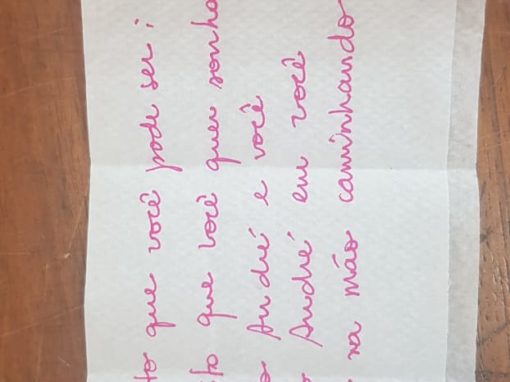 to que você pode ser;
to que você quer sonha
o André e você
o André em você
na mão caminhando